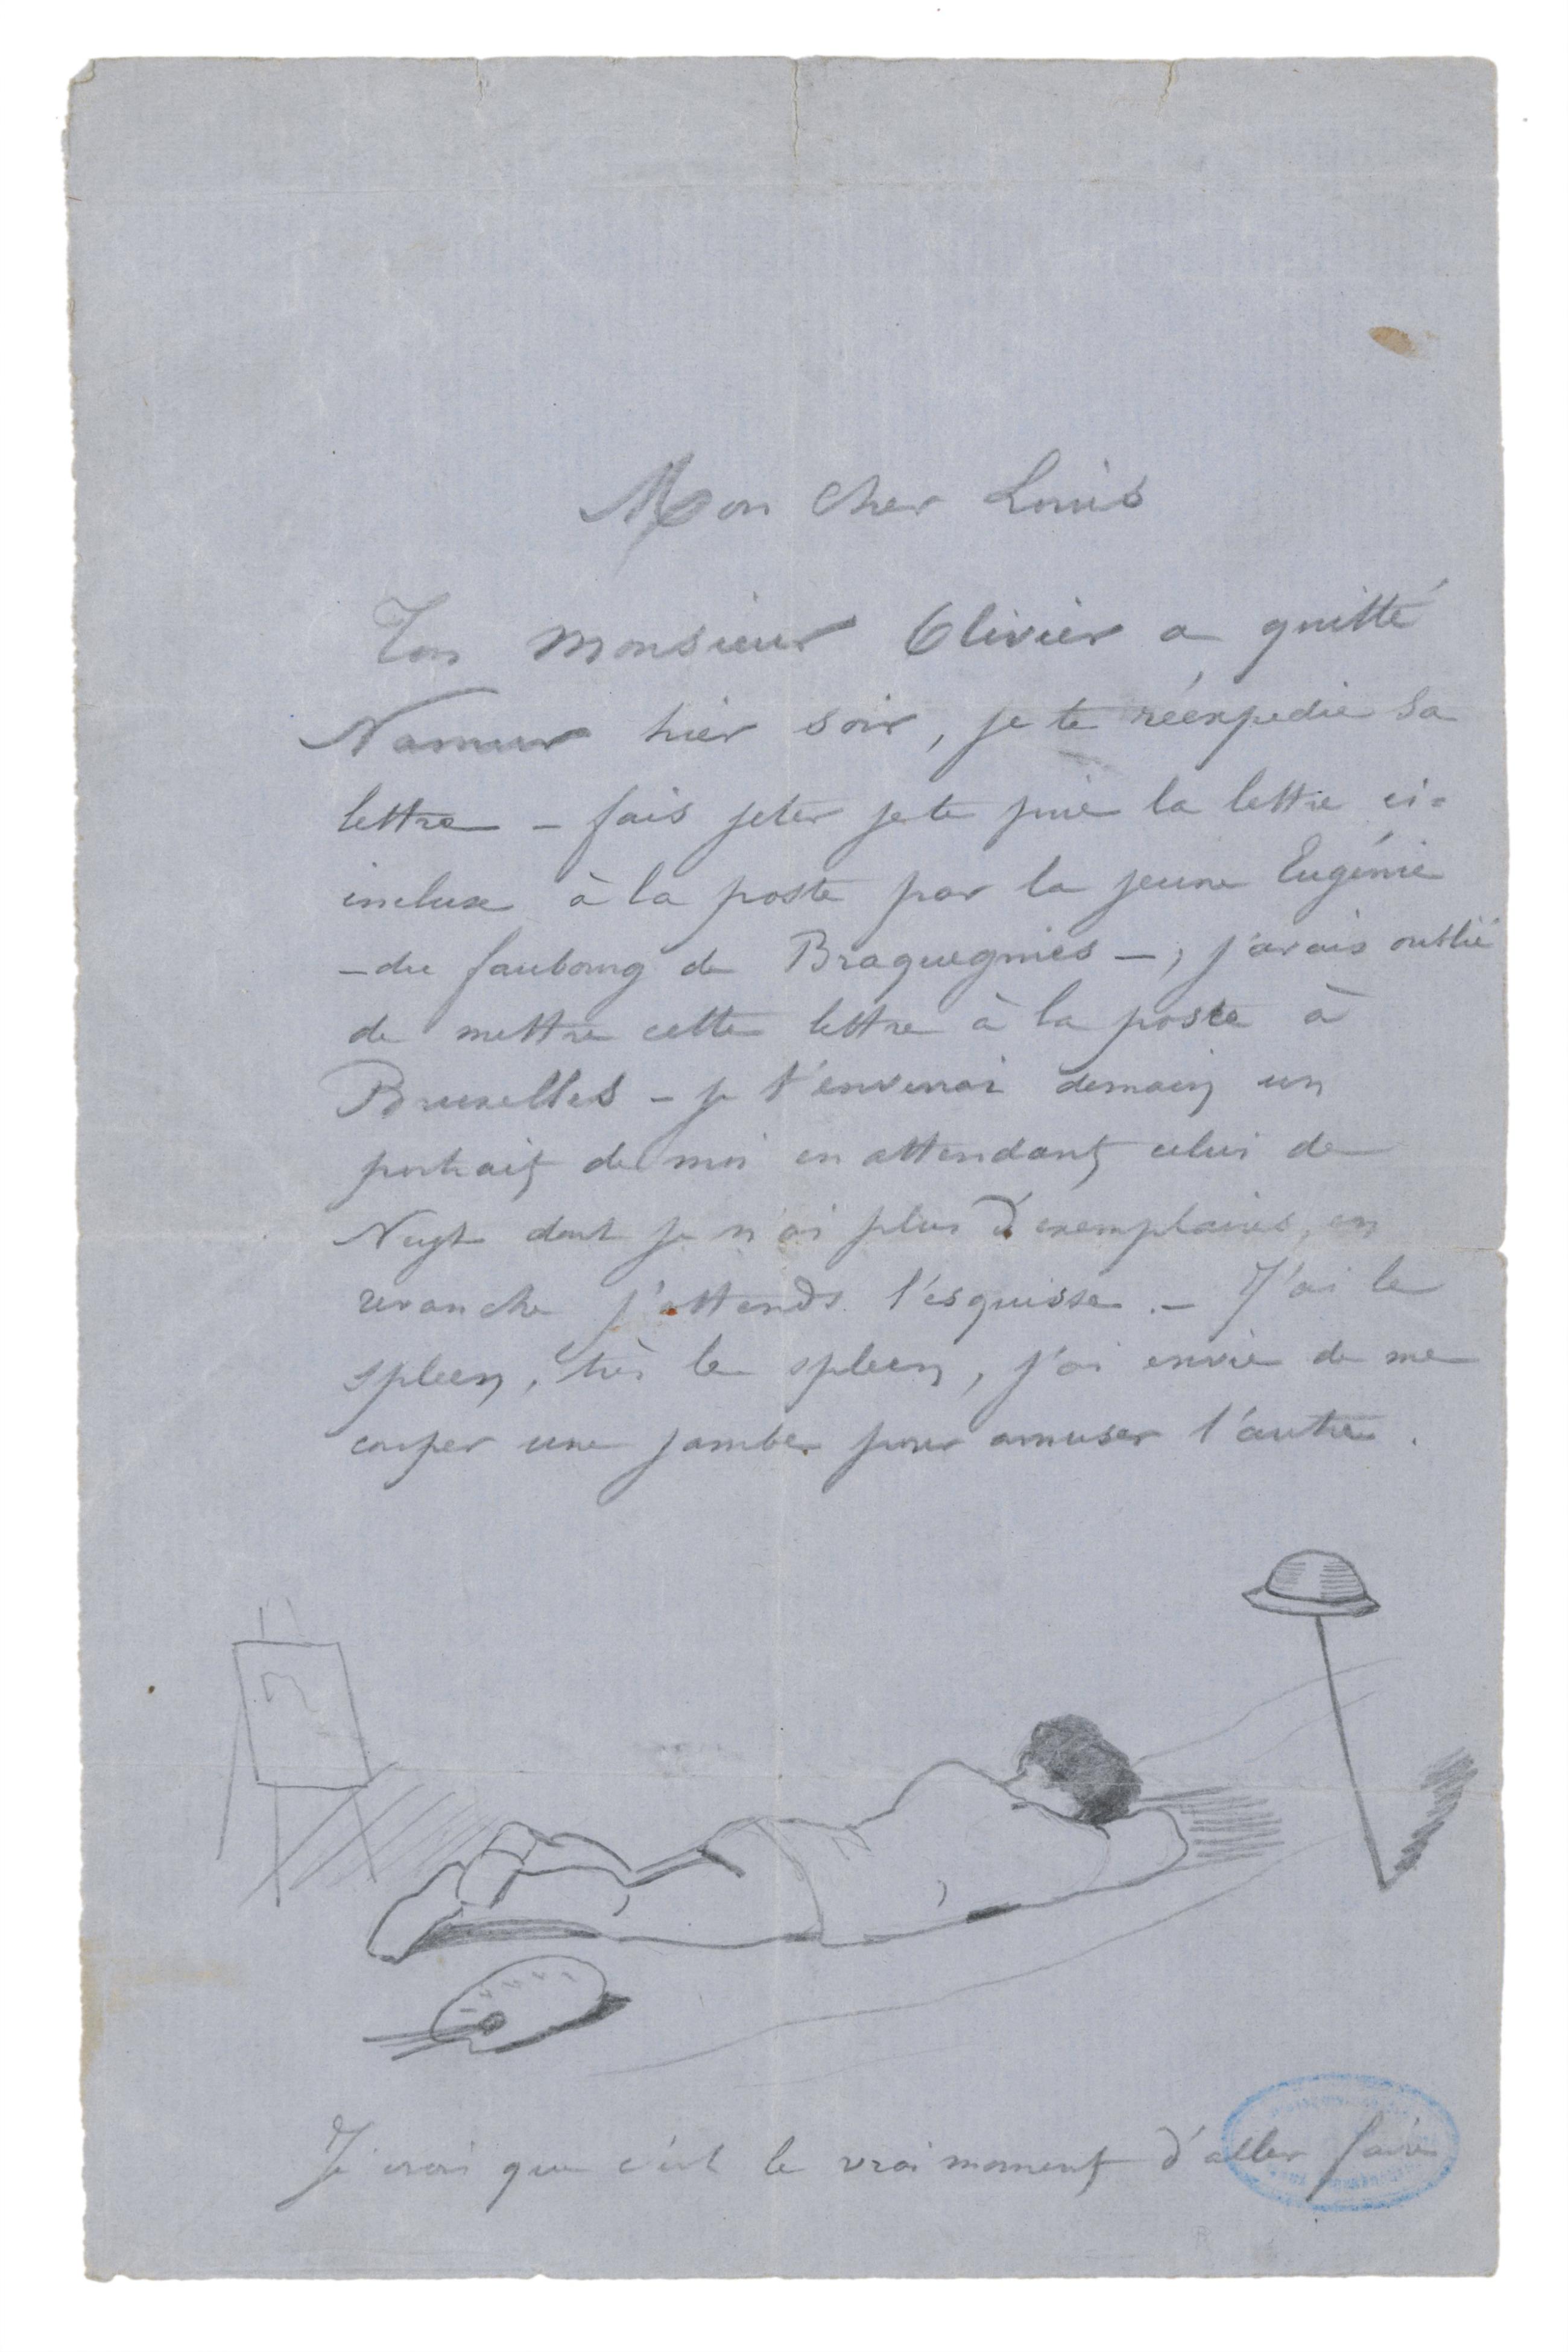 Mon cher Louis
Ton Monsieur Olivier a quitté
Namur hier soir, je te réexpedie sa
lettre – fais jeter je te prie la lettre ci=
incluse à la poste par la jeune Eugénie
– du faubourg de Braquegnies –, j'avais oublié
de mettre cette lettre à la poste à
Bruxelles – je t'enverrai demain un
portrait de moi en attendant celui de
dont je n'ai plus d'exemplaires, en
revanche j'attends l'esquisse. – J'ai le
spleen, très le spleen, j'ai envie de me
couper une jambe pour amuser l'autre.
Je crois que c'est le vrai moment d'aller faire